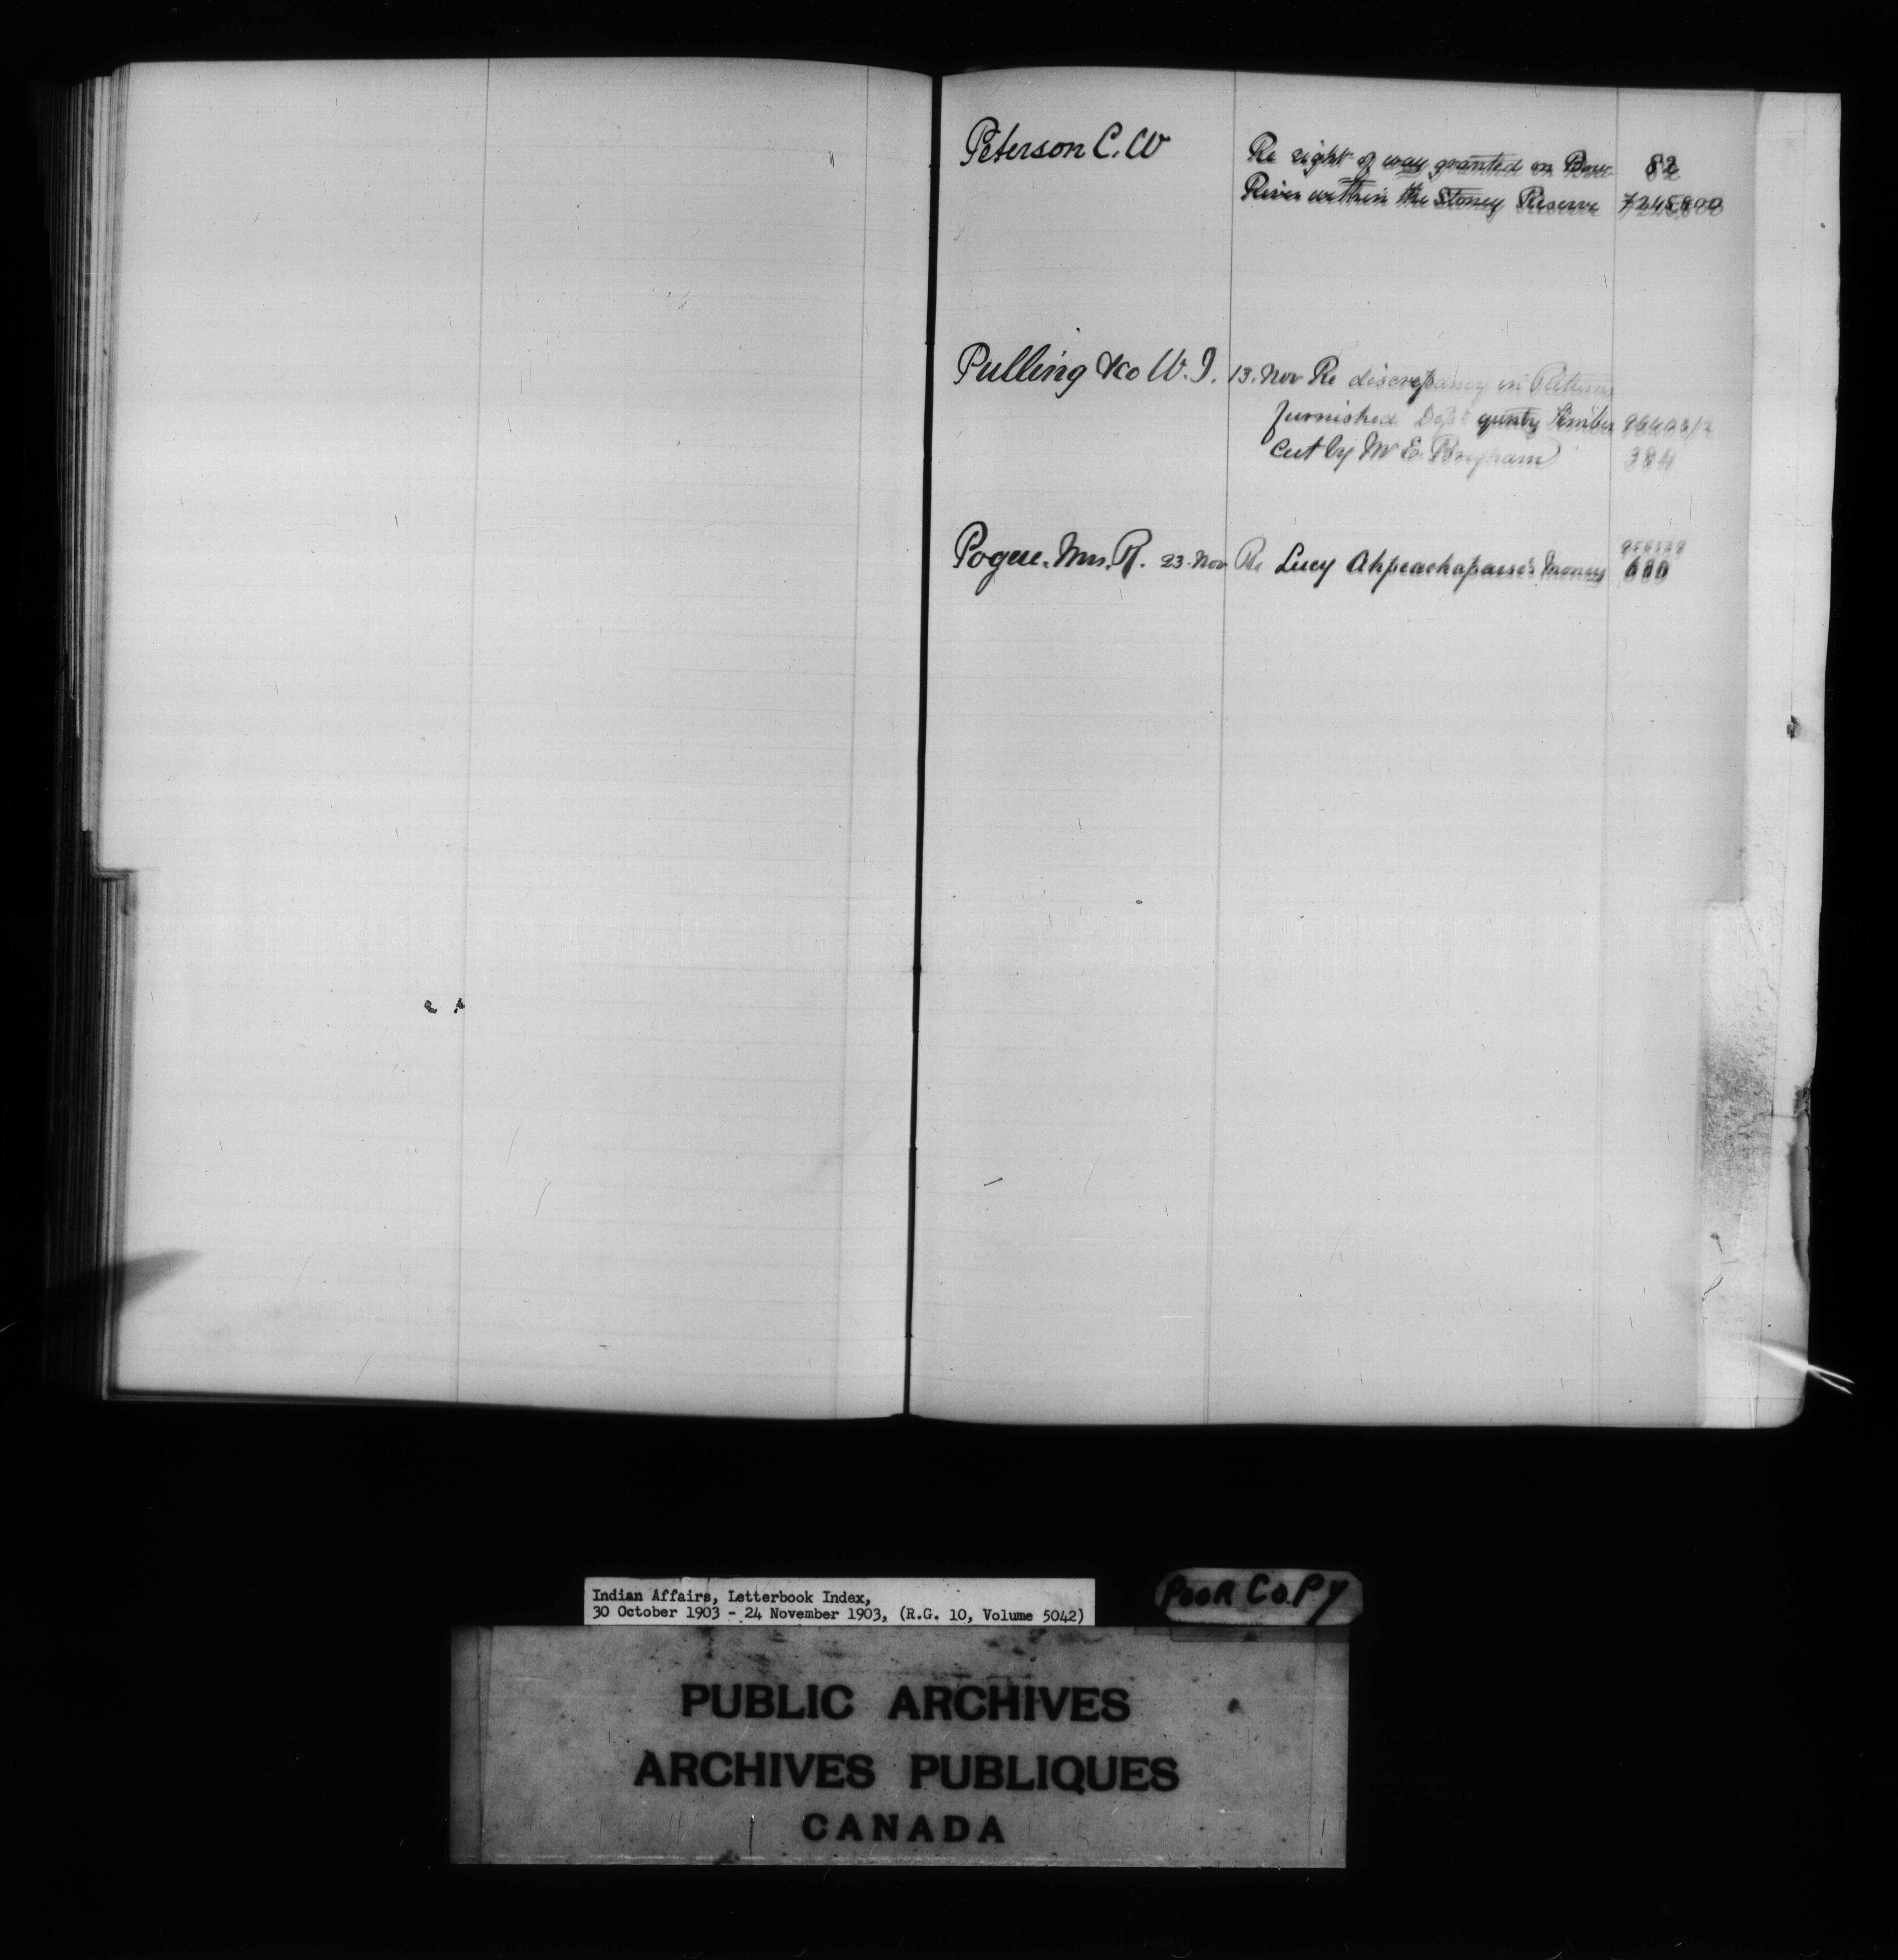 Peterson C. W
Re right of way granted on Bow 82
River within the Stoney Reserve
Pulling &Co W. I. 13. Nov Re discrepancy in Returns
furnished Dept Timber
cut by Mr E. Brigham 384
Pogue. Mrs. R. 23. Nov Re Lucy money
Indian Affairs, Letterbook Index,
30 October 1903 - 24 November 1903, (R.G. 10, Volume 5042)
POOR COPY
PUBLIC ARCHIVES
ARCHIVES PUBLIQUES
CANADA